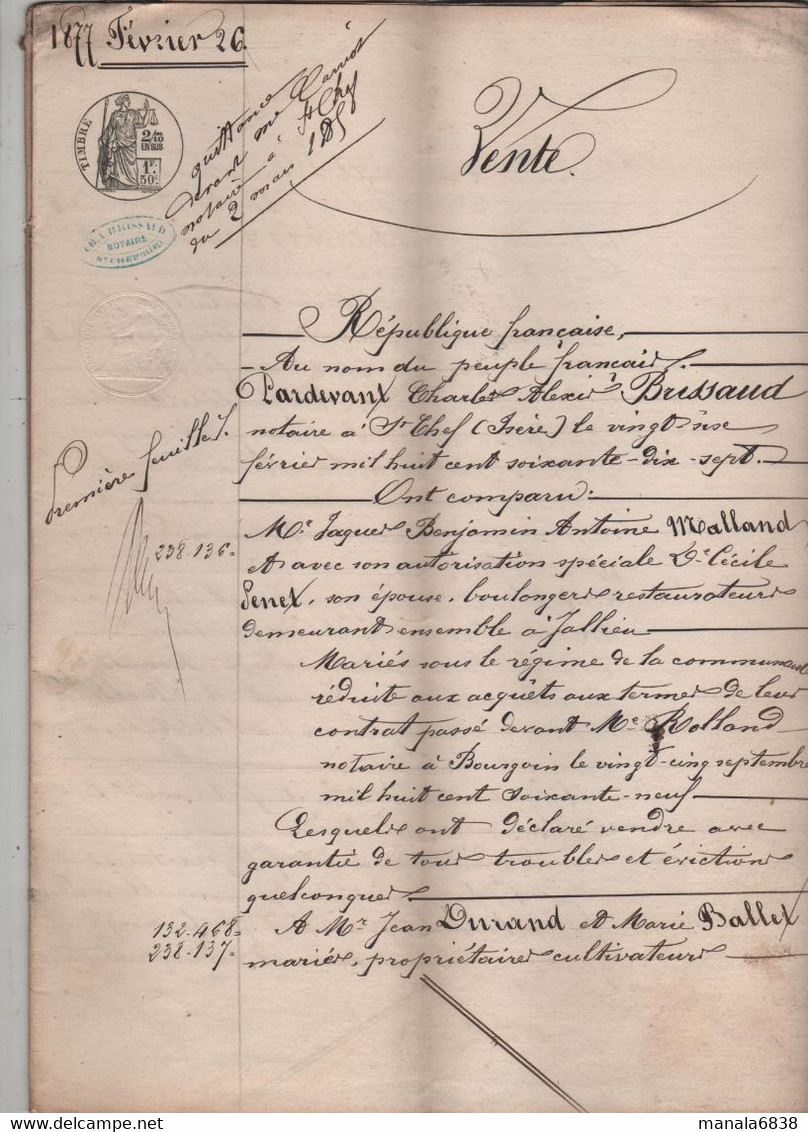 1877 Février 26.
quittance
devant me
notaire à St Chef
du 2 mars 185
Vente.
TIMBRE
2/10
EN SUS
1F
50c
CHA BRISSAUD
NOTAIRE
République française,
Au nom du peuple français.
Pardevant Charles Alexis Brissaud
notaire à St Chef (Isère) le vingt-six
février mil huit cent soixante-dix-sept.
Ont comparu:
Première feuille.
238.136=
Mr Jaques Benjamin Antoine Malland
et avec son autorisation spéciale De Cécile
Genet, son épouse, boulangers restaurateurs
demeurant ensemble à Jallieu
Mariés sous le régime de la communauté
réduite aux acquêts aux termes de leur
contrat passé devant Me Rolland
notaire à Bourgoin le vingt-cinq septembre
mil huit cent soixante-neuf
Lesquels ont déclaré vendre avec
garantie de tous troubles et éviction
quelconques.
132.468=
238.137=
A Mr Jean Durand et Marie Ballet
mariés, propriétaires cultivateurs
delcampe.net
manala6838